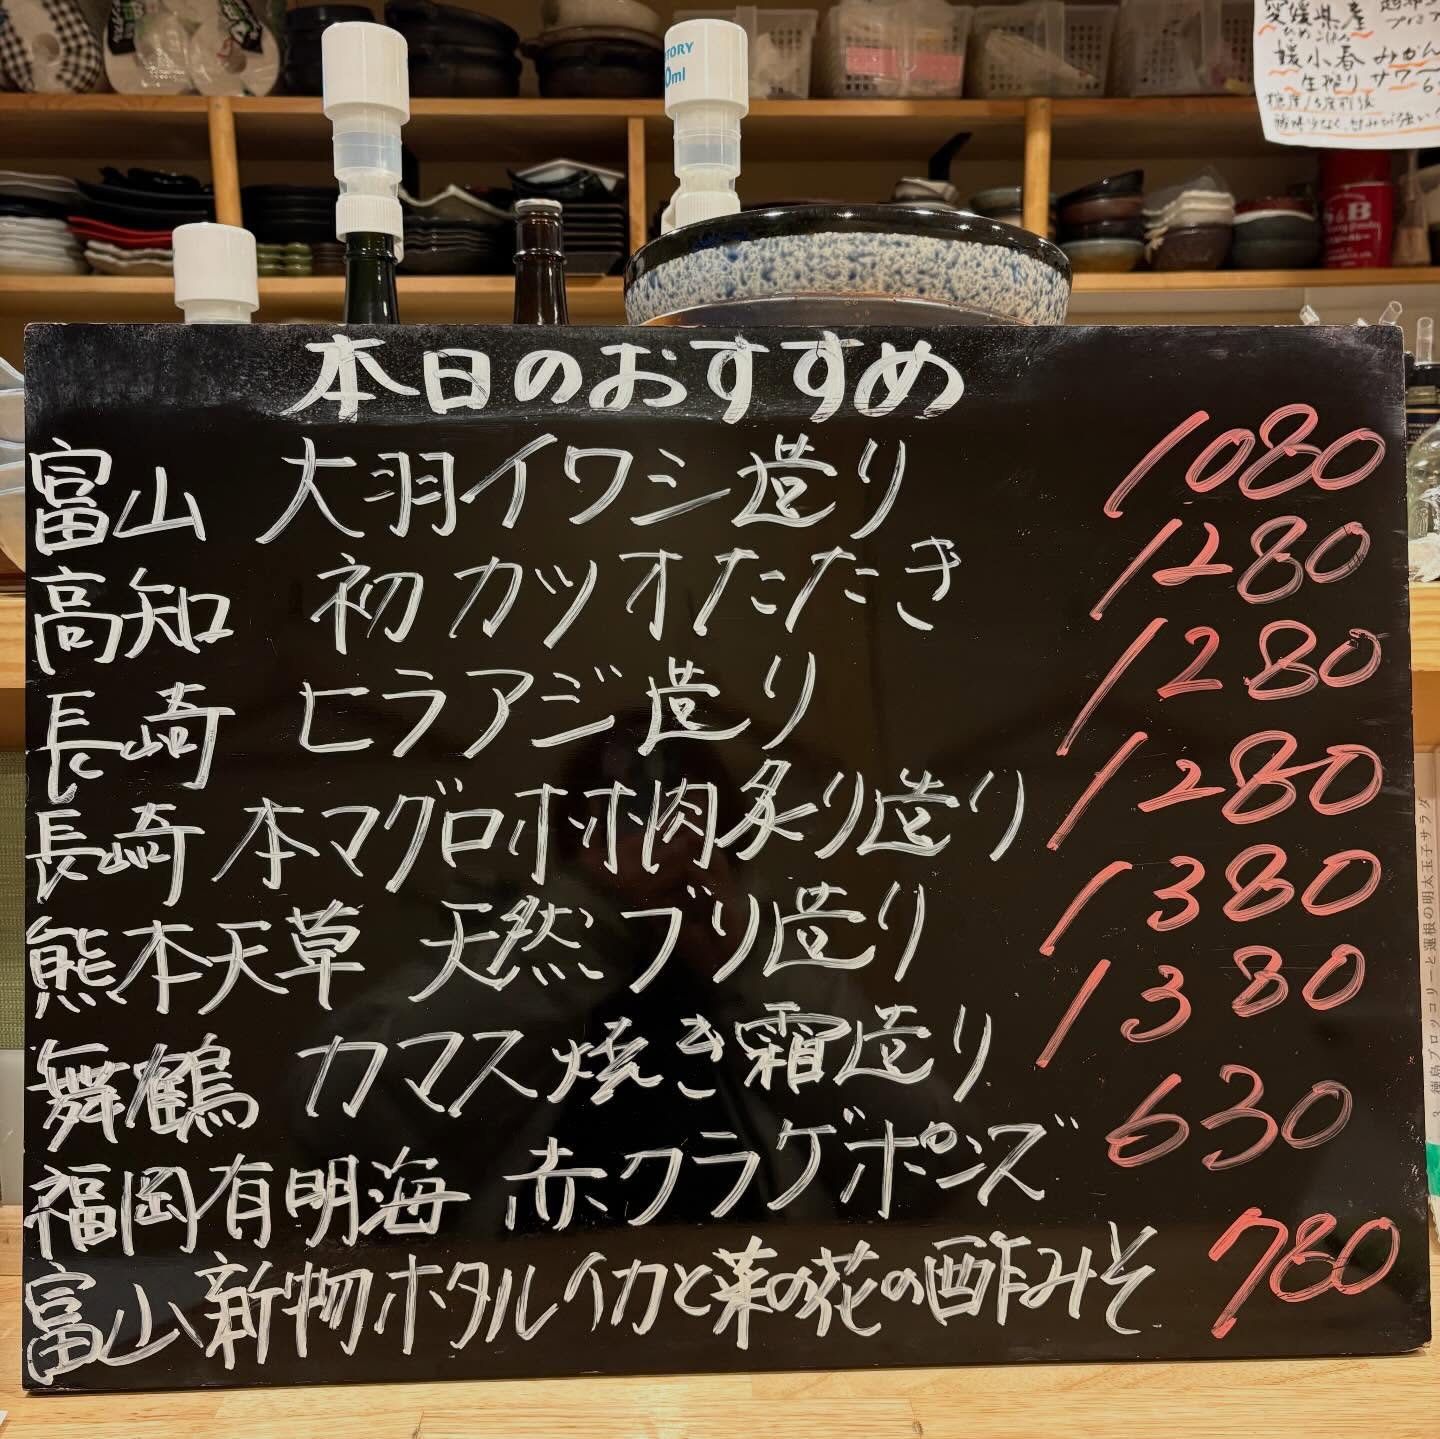 愛媛県産
媛小春 みかん
生搾り サワー
糖度13度前後
酸味少なく、甘みが強い
TORY
0ml
S&B
本日のおすすめ
富山 大羽イワシ造り 1080
高知 初カツオたたき 1280
長崎 ヒラアジ造り 1280
長崎 本マグロホホ肉炙り造り 1280
熊本天草 天然ブリ造り 1380
舞鶴 カマス焼き霜造り 1380
福岡有明海 赤クラゲポンズ 630
富山 新物ホタルイカと菜の花の酢みそ 780
徳島ブロッコリーと蓮根の明太玉子サラダ